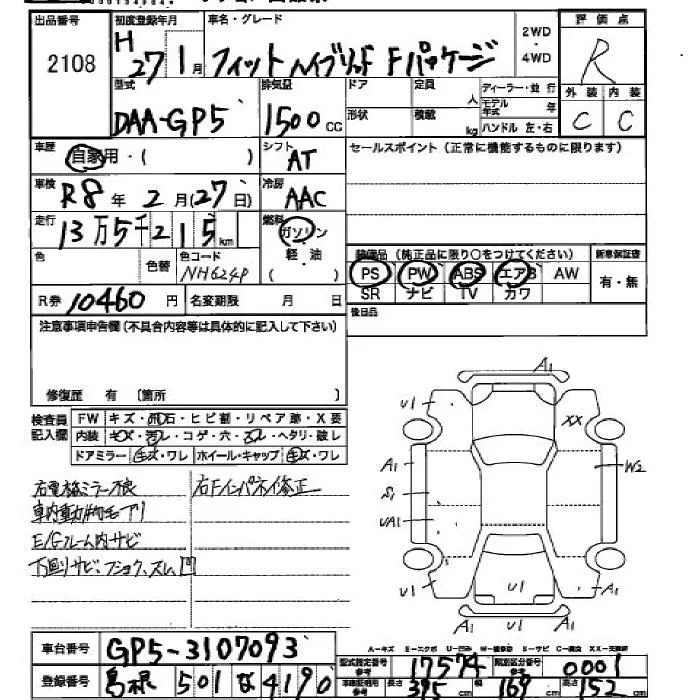 出品番号 初度登録年月 車名・グレード 2WD・4WD 評価点
2108 H27 1月 フィットハイブリッド Fパッケージ R
型式 排気量 ドア 定員 人 ディーラー・並行 外装 内装
DAA-GP5 1500cc 形状 積載 kg モデル年式 年 C C
ハンドル 左・右
車歴 自家用・( ) シフト AT セールスポイント(正常に機能するものに限ります)
車検 R8年 2月(27日) 冷房 AAC
走行 13万5千215km 燃料 ガソリン
軽・油
( )
色 色替 色コード NH624P
装備品(純正品に限り○をつけてください) 新車保証書
PS PW ABS エアB AW 有・無
SR ナビ TV カワ
R券 10460円 名変期限 月 日 後日品
注意事項申告欄(不具合内容等は具体的に記入して下さい)
修復歴 有 〔箇所 〕
検査員記入欄 FW キズ・飛石・ヒビ割・リペア跡・X要
内装 キズ・汚レ・コゲ・穴・スレ・ヘタリ・破レ
ドアミラー キズ・ワレ ホイール・キャップ キズ・ワレ
右電格ミラー不良 右Fインパネイ修正
車内動物毛アリ
E/Gルーム内サビ
下回りサビ、フショク、スレ、凹
A1
U1 XX
A1 W2
S1
UA1
U1 U1 A1
A1 A1
A-キズ E-エクボ U-凹み W-補修跡 S-サビ C-腐食 XX-交換済
車台番号 GP5-3107093
登録番号 島根 501 な 4190
型式指定番号 参考 17574 類別区分番号 参考 0001
車検証明用 参考 長さ 395cm 幅 169cm 高さ 152cm